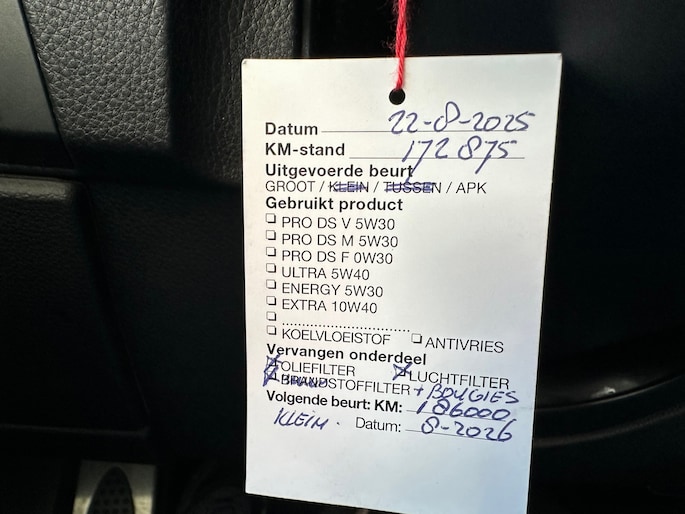 Datum 22-8-2025
KM-stand 172875
Uitgevoerde beurt
GROOT / KLEIN / TUSSEN / APK
Gebruikt product
PRO DS V 5W30
PRO DS M 5W30
PRO DS F 0W30
ULTRA 5W40
ENERGY 5W30
EXTRA 10W40
................................
KOELVLOEISTOF ANTIVRIES
Vervangen onderdeel
OLIEFILTER LUCHTFILTER
BRANDSTOFFILTER + BOUGIES
Volgende beurt: KM: 186000
KLEIN. Datum: 8-2026